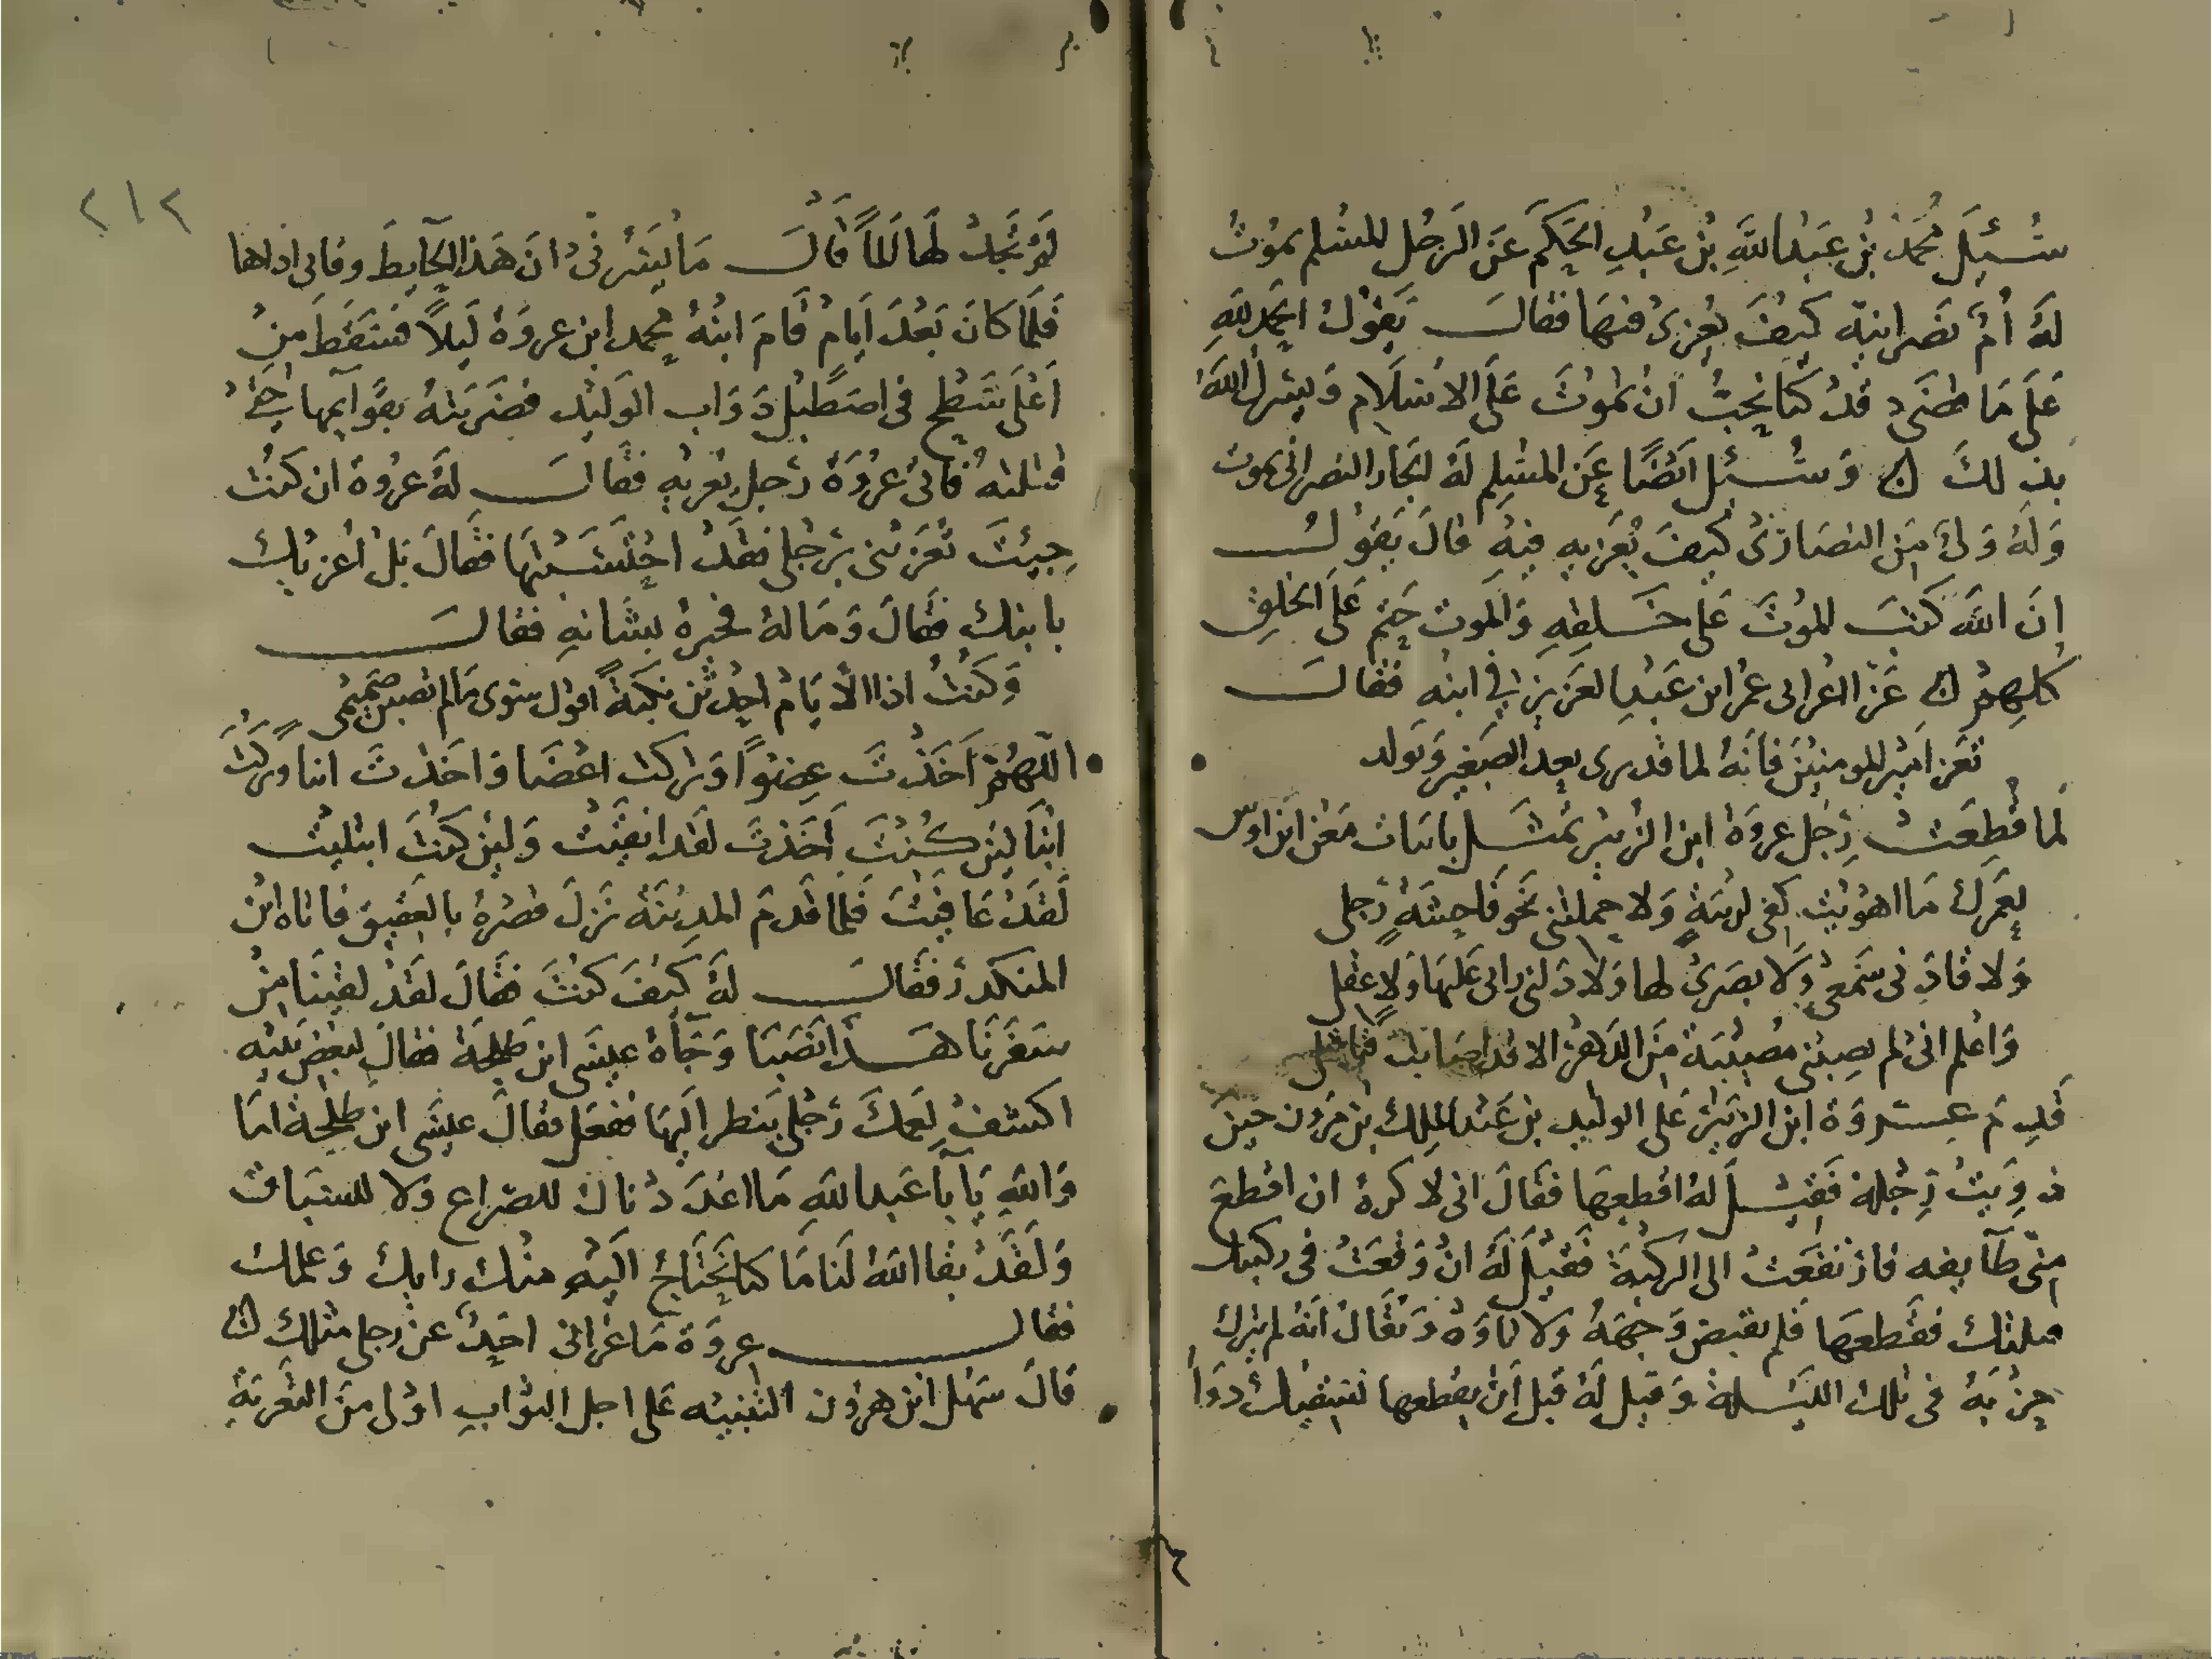 سُئِلَ مُحمد بْن عَبدُ اللَّه بْن عَبدِ الحَكَم عَن الرَجُل المسُلم يمَوُتُ
لَهُ اُمٌّ نصَرانيَّة كيفَ يُعزىُ فيهَا فقالَ يَقوُلُ الحمدُ للَّهِ
عَلَى مَا قضَى قدُ كنا نحُبُّ انُ تموُتَ عَلَى الاسْلاَم وَيسُر اللَّهُ
بذلكَ ۞ وَسُئِل ايَضًا عَن المسُلِم لَهُ الجار النصراني يموت
وَلَهُ وَلَدٌ مِنَ النصَارىَ كيفَ يُعَزيهِ فيِهُ قالَ يَقوُلُ
اِنَ اللَّهَ كَتبَ الموُتَ عَلَى خَلقِهِ وَالموت حَتم عَلَى الخلق
كلِهِمُ ۞ عَزّا اعُرابى عمُر ابن عَبدِ العَزيز في ابنهِ فقالَ
تعَزَ امير المومنيْنَ فانَهُ لما قد ترى يعد الصَغير وَيولد
لَما قُطِعَتْ رِجُل عروَة ابن الزبير تمَثَل بابيَات مَعُن ابن اوس
لِعَمرك مَا اهوَيت كفى لريبَةٍ وَلا حملتنى نحوَ فَاحِشَةٍ رجلى
وَلا قادَنى سَمعى وَلا بصَرىُ لها وَلا دَلنى رائى عَليهَا وَلا عقلى
وَاعُلم انى لم تصِبنى مصُيبَة مِنَ الدَهرْ الا قد اصَابت فتا قبلى
قَدِمَ عروَة ابن الزبَيْر عَلى الوليد بن عَبْد الملِك بْن مرَون حينَ
دوِيَتْ رِجُله فَقيْلَ لهُ اقطعِهَا فقَالَ انى لا كرهُ ان اقطعَ
مِنّى طآيفه فارَتفَعَتْ الى الركبُة فَقيْلَ لَهُ انْ وَقعَتُ فى ركبتك
قتلتك فقَطعهَا فَلم يقبض وَجهَهُ وَلا تاوَهَ وَيقَالُ انهُ لم يترك
حِزْبَهُ فى تلك الليَلة وَقيل لَهُ قبلَ اَن يقطعها نسقيك دوَاً
لمَ تجَدُ لهَا المَاً قالَ مَا يَسُرنى انَ هَذا الحَآيط وقانى اذاها
فَلَمَا كانَ بَعْدَ اَيام قَامَ ابنُهُ محمد ابن عروَة لَيلاً فسَقَطَ مِنُ
اَعُلَى سَطح فى اصطَبل دَوَاب الوَليد فضَرَبتهُ بقوَايمها حَتى
قتلته فاتى عرُوَةَ رَجل يعزيهِ فقَالَ لَهُ عرُوة ان كنتَ
جِيْتَ تعَزينى برَجلى فقَدُ احتَسَبتهَا فقَالَ بَلْ اُعزيك
بابنك فقَالَ وَمَا لهُ فخبرهُ بشَانهِ فقالَ
وَكنْتُ اذا الأيَام احدثن نكبَةً اقول سوى مَا لم تصبن صَميمى
اللّهُمَّ اَخَذْتَ عضوًا وَتركت اعضَا وَاخَذتَ ابنا وَتركتَ
ابنَا لئن كُنتَ اَخَذتَ لقَد ابقيَتْ وَلئِن كنتَ ابتليْت
لقَدُ عَافَيتَ فَلما قدمَ المدِينَة نزَلَ قصْرهُ بالعَقيق فاتاه ابْن
المنكدر فقَالَ لَهُ كيفَ كنُتَ فقَالَ لقَدُ لقينَا مِنْ
سَفَرنَا هَذا نَصَبا وَجَآهُ عيسَى ابن طلحَة فقالَ لبعَض بَنيه
اكشفُ لِعَمكَ رَجلى يَنظر اليهَا ففعَل فقالَ عيسَى ابن طلحَة امَا
وَاللَّهِ يَا اَبَا عَبد اللَّه مَا اعدَدنَاك للصرَاع وَلا للسَبَاق
وَلقَدُ بقا اللَّه لنَا مَا كنا نَحتَاجُ اليْهِ منُك رايك وَعلمك
فقال عروَة مَا عزانى احَدٌ عنُ رجلى مثلك ۞
قالَ سَهْل ابن هرون التهنيه عَلى اجل الثوَابِ اوُلى مِنَ التعزيَة
٢١٢